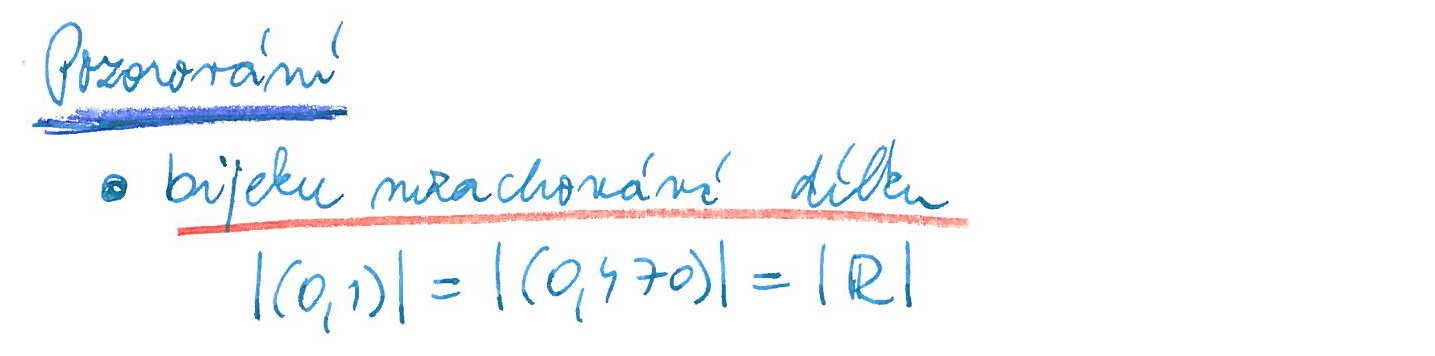 Pozorování
• bijekce nezachovává délku
|(0,1)| = |(0,470)| = |ℝ|